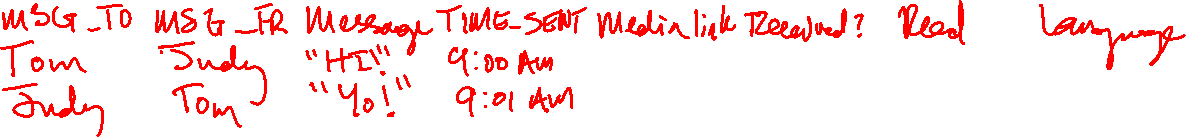 MSG_TO MSG_FR Message TIME_SENT Media link Received? Read Language
Tom Judy "HI!" 9:00 AM
Judy Tom "Yo!" 9:01 AM